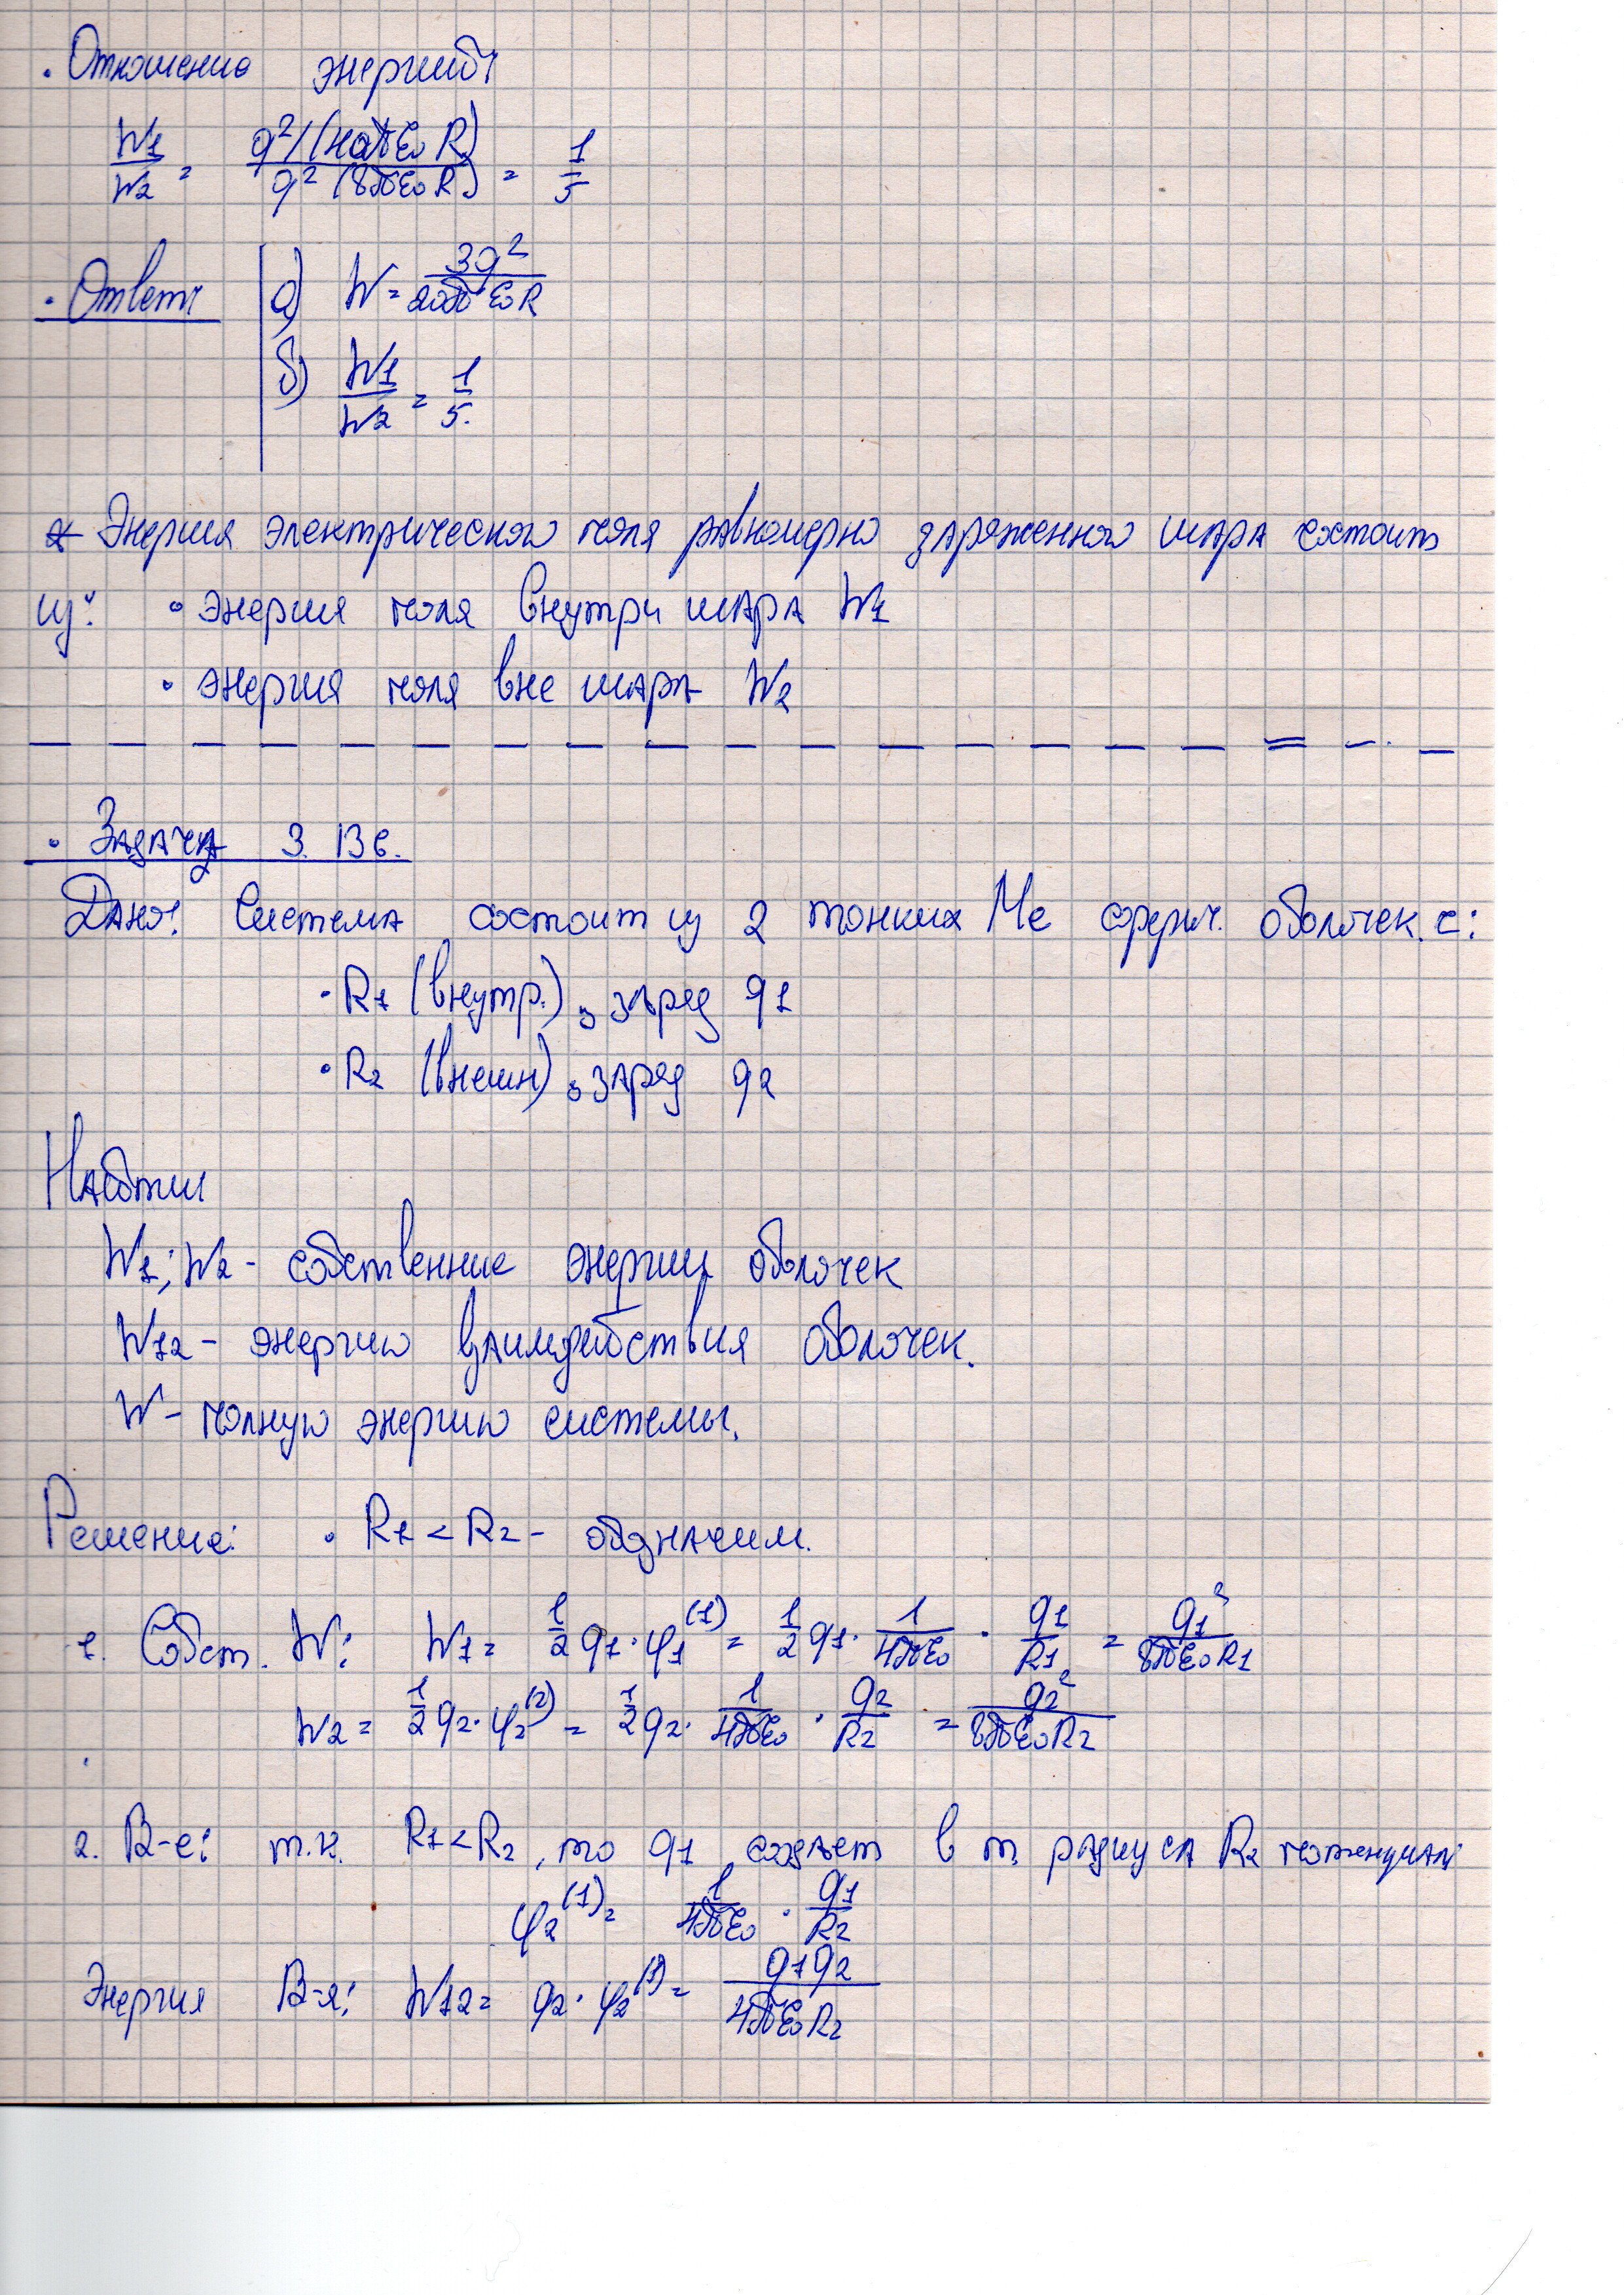 • Отношение энергий:
W1/W2 = q²/(40πε₀R) / q²/(8πε₀R) = 1/5
• Ответ: а) W = 3q²/20πε₀R
б) W1/W2 = 1/5.
* Энергия электрического поля равномерно заряженного шара состоит
из: • энергия поля внутри шара W1
• энергия поля вне шара W2
• Задача 3.136.
Дано: Система состоит из 2 тонких Ме сферич. оболочек с:
• R1 (внутр.), заряд q1
• R2 (внешн), заряд q2
Найти
W1; W2 - собственные энергии оболочек
W12 - энергию взаимодействия оболочек.
W - полную энергию системы.
Решение: • R1 < R2 - обозначим.
1. Собст. W: W1 = 1/2 q1 · φ1⁽¹⁾ = 1/2 q1 · 1/4πε₀ · q1/R1 = q1²/8πε₀R1
W2 = 1/2 q2 · φ2⁽²⁾ = 1/2 q2 · 1/4πε₀ · q2/R2 = q2²/8πε₀R2
2. В-е: т.к. R1 < R2, то q1 создает в т. радиуса R2 потенциал:
φ2⁽¹⁾ = 1/4πε₀ · q1/R2
Энергия В-я: W12 = q2 · φ2⁽¹⁾ = q1q2/4πε₀R2